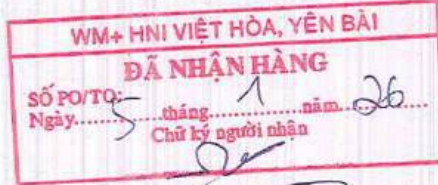 WM+ HNI VIỆT HÒA, YÊN BÀI
ĐÃ NHẬN HÀNG
SỐ PO/TO:
Ngày.....5.....tháng.....1.....năm.....26.....
Chữ ký người nhận